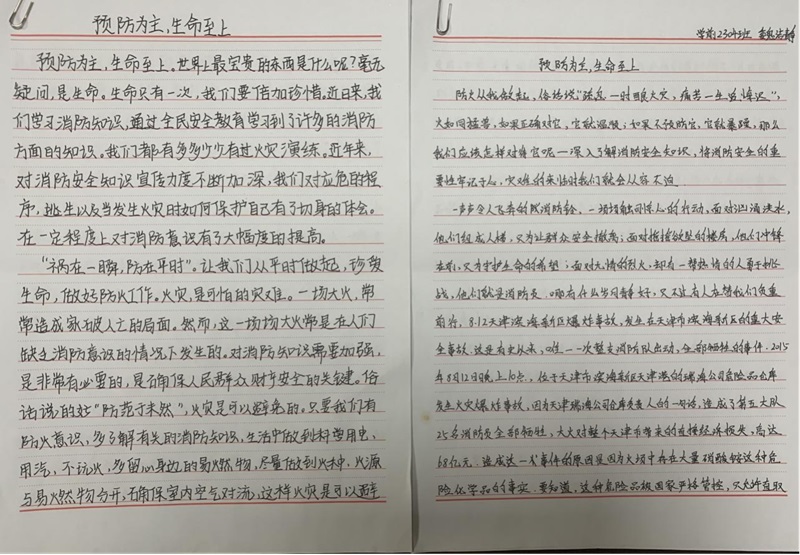 预防为主,生命至上
预防为主,生命至上。世界上最宝贵的东西是什么呢?毫无
疑问,是生命。生命只有一次,我们要倍加珍惜。近日来,我
们学习消防知识,通过全民安全教育学习到了许多的消防
方面的知识。我们都有多多少少有过火灾演练。近年来,
对消防安全知识宣传力度不断加深,我们对应急的程
序,逃生以及当发生火灾时如何保护自己有了切身的体会。
在一定程度上对消防意识有了大幅度的提高。
“祸在一瞬,防在平时”。让我们从平时做起,珍爱
生命,做好防火工作。火灾,是可怕的灾难。一场大火,常
常造成家破人亡的局面。然而,这一场场大火常是在人们
缺乏消防意识的情况下发生的。对消防知识需要加强,
是非常有必要的,是确保人民群众财产安全的关键。俗
话说的好“防范于未然”,火灾是可以避免的。只要我们有
防火意识,多了解有关的消防知识,生活中做到科学用电、
用汽,不玩火,多留心身边的易燃物,尽量做到火种,火源
与易燃物分开,确保室内空气对流,这样火灾是可以避
学前2304班
预防为主,生命至上
防火从我做起,俗话说“一时眼大灾,痛苦一生
火如同猛兽,如果正确对它,它就温顺;如果不预防它,它就暴躁,那么
我们应该怎样对待它呢—深入了解消防安全知识,将消防安全的重
要性牢记于心,灾难的来临时我们就会从容不迫
一声声令人飞奔的 消防铃,一场场触动人的行动,面对汹涌洪水,
他们组成人梯,只为让群众安全撤离;面对摇摇欲坠的楼房,他们冲锋
在前,只为守护生命的希望;面对大的烈火,却有一帮热情的人勇于挑
战,他们就是消防员。哪有什么岁月静好,只不过有人在替我们负重
前行,8.12天津滨海新区爆炸事故,发生在天津市滨海新区的重大安
全事故,这是有史以来,唯一一次整支消防队出动,全部牺牲的事件.2015
年8月12日晚上10点,位于天津市滨海新区天津港的瑞海公司危险品仓库
发生火灾爆炸事故,因为天津瑞海公司仓库负责人的一句话,造成了第五大队
25名消防员全部牺牲,大火对整个天津市带来的直接经济损失,高达
68亿元。造成这一火事件的原因是因为火场中存在大量硝酸铵这种危
险化学品的事实.要知道,这种危险品被国家严格管控,只允许直取